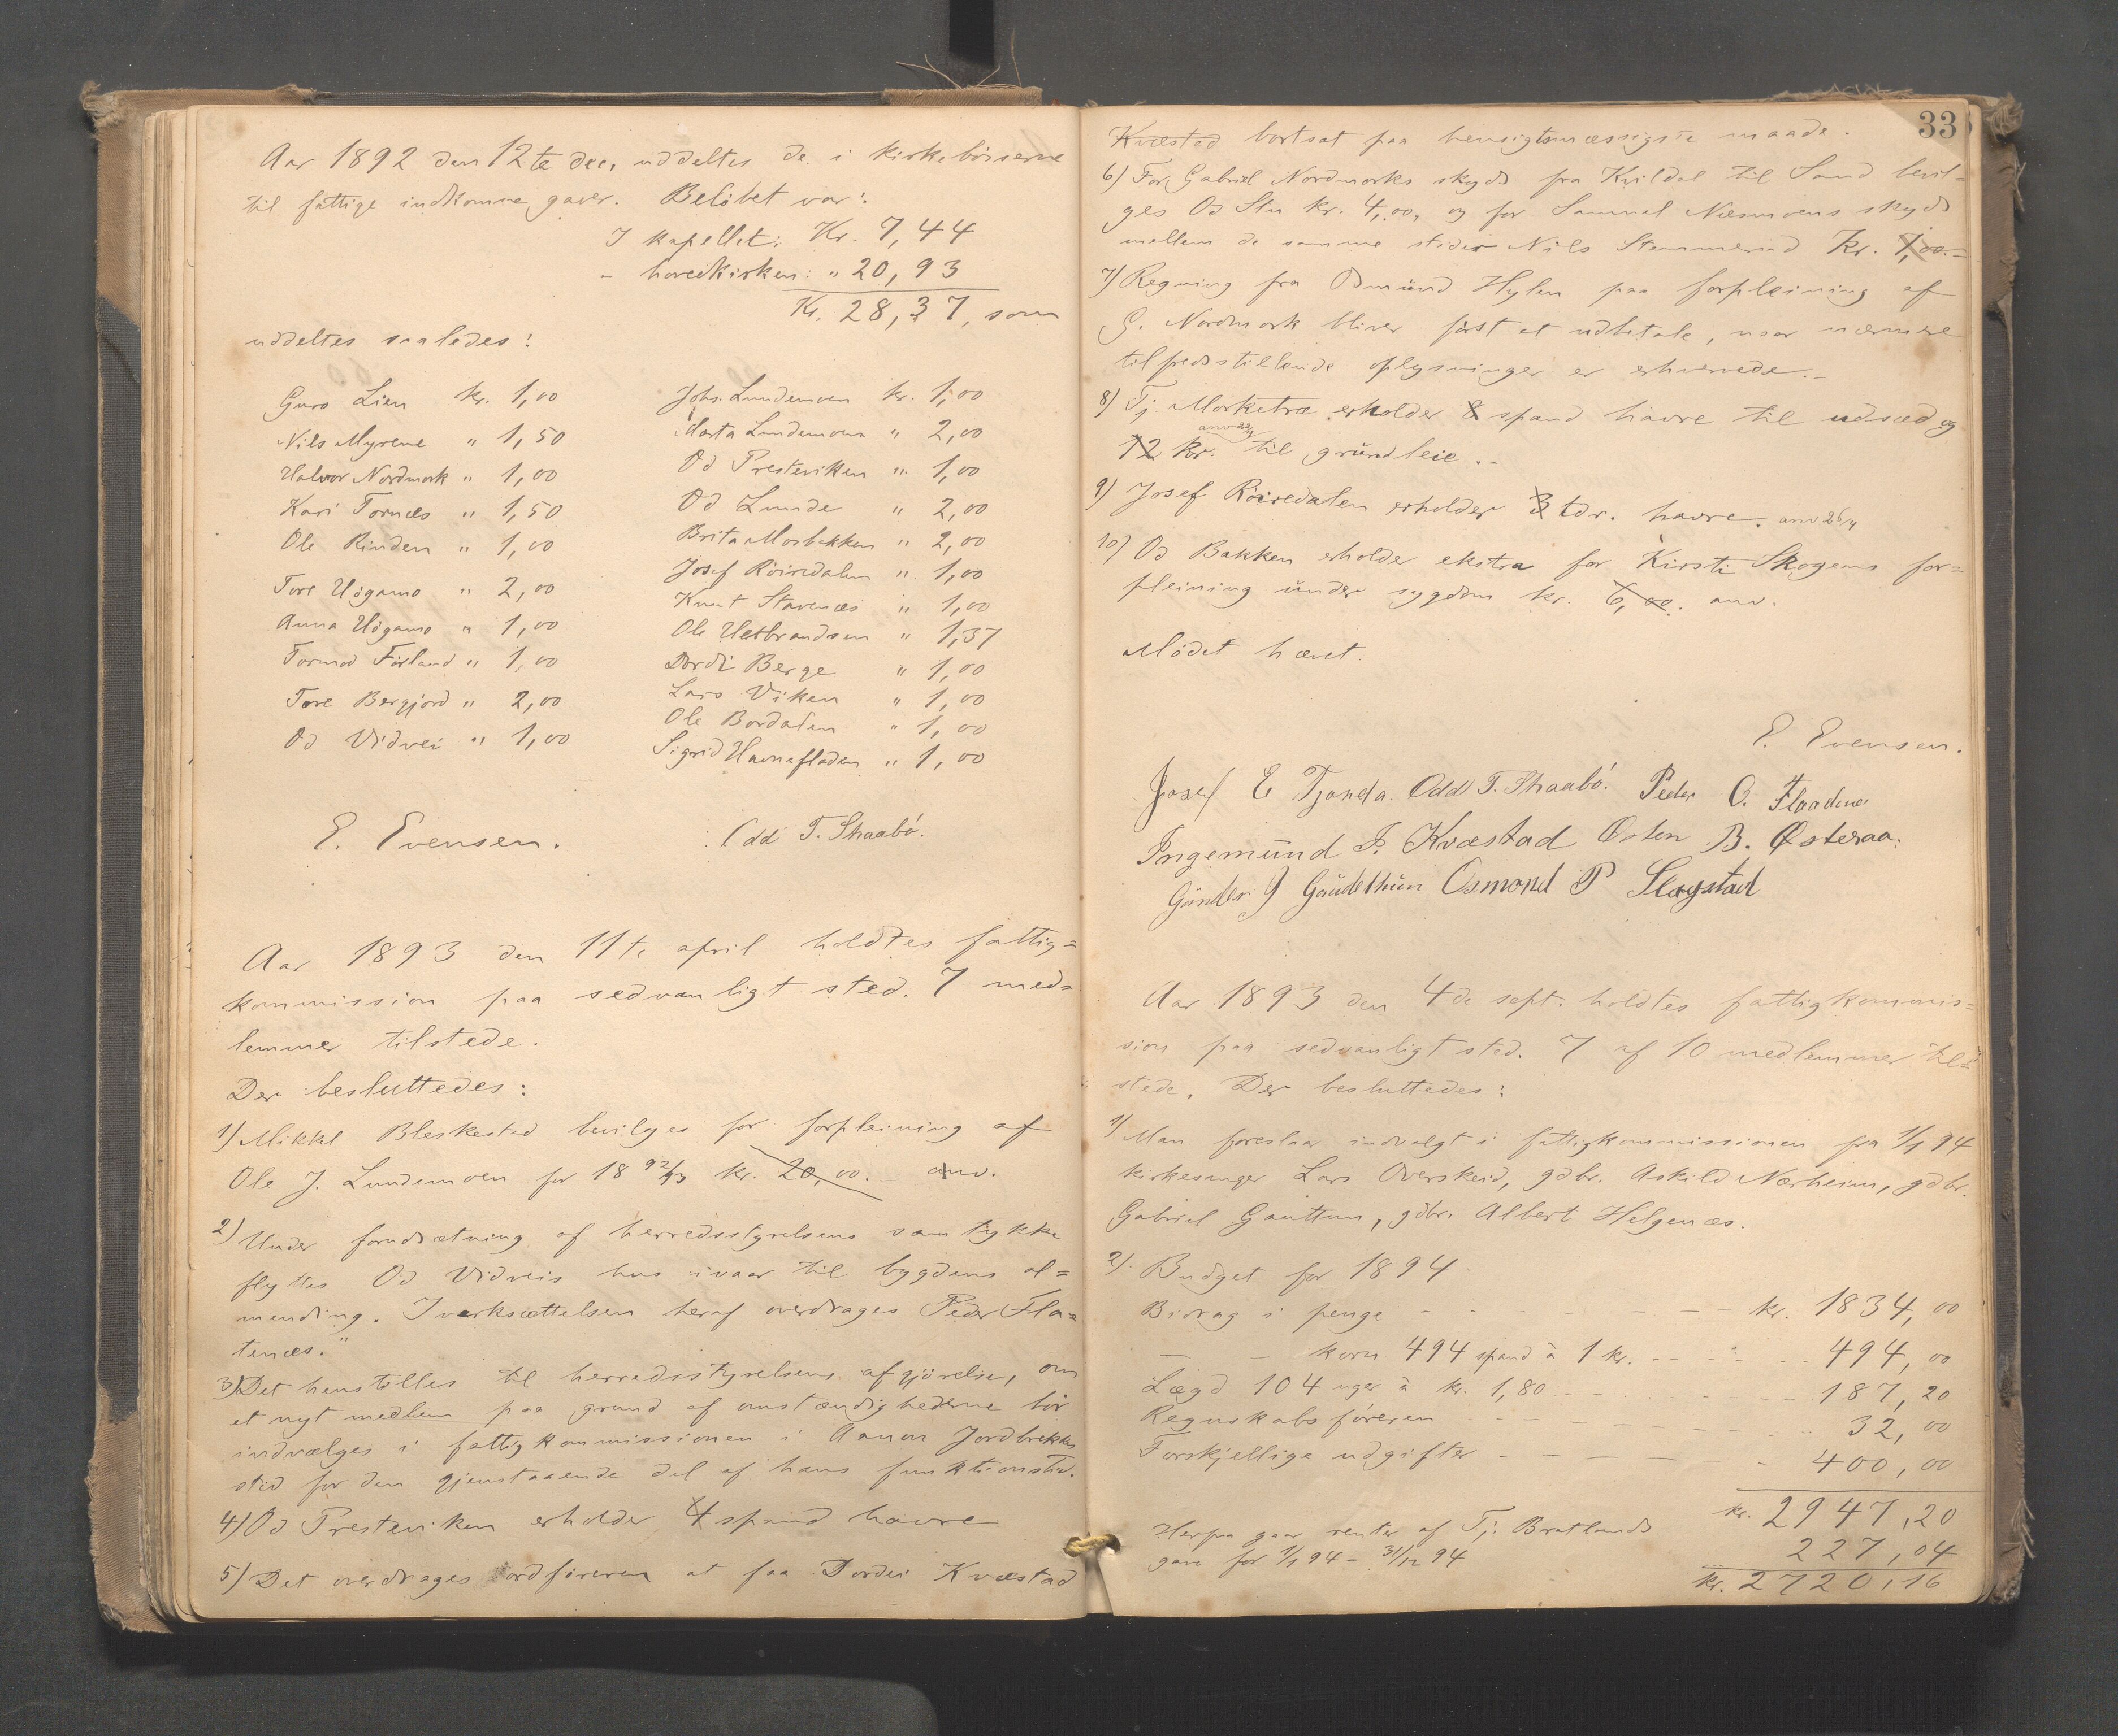 Aar 1892 den 12te dec. uddeltes de i kirkebøsserne
til fattige indkomne gaver. Beløbet var:
I kapellet: Kr. 7,44
- hovedkirken: " 20,93
Kr. 28,37, som
uddeltes saaledes:
Guro Lien kr. 1,00
Nils Myrene " 1,50
Halvor Nordmork " 1,00
Kari Tornæs " 1,50
Ole Rinden " 1,00
Tore Høgamo " 2,00
Anna Høgamo " 1,00
Tormod Førland " 1,00
Tore Bergjord " 2,00
Od Vidvei " 1,00
Johs. Lundemoen kr. 1,00
Marta Lundemoen " 2,00
Od Presteviken " 1,00
Od Lunde " 2,00
Brita Mosbakken " 2,00
Josef Røiredalen " 1,00
Knut Stavenæs " 1,00
Ole Helbrandsen " 1,37
Dordi Berge " 1,00
Lars Viken " 1,00
Ole Bordalen " 1,00
Sigrid Havnefladen " 1,00
E. Evensen. Odd T. Shaabø.
Aar 1893 den 11te april holdtes fattig=
kommission paa sedvanligt sted. 7 med=
lemmer tilstede.
Der besluttedes:
1) Mikkel Bleskestad bevilges for forpleining af
Ole J. Lundemoen for 1892/93 kr. 20,00. - anv.
2) Under forudsætning af herredsstyrelsens samtykke
flyttes Od Vidveis hus ivaar til bygdens al=
mending. Iverksættelsen heraf overdrages Peder Fla=
tenæs."
3) Det henstilles til herredsstyrelsens afgjørelse, om
et nyt medlem paa grund af omstændighederne bør
indvælges i fattigkommissionen i Aanon Jordbrekkes
sted for den gjenstaaende del af hans funktionstid.
4) Od Presteviken erholder 4 spand havre
5) Det overdrages ordføreren at faa Dordei Kvæstad
33
Kvæstad bortsat paa hensigtsmæssigste maade.
6) For Gabriel Nordmorks skyds fra Kvildal til Sand bevil=
ges Od Stu kr. 4,00, og for Samuel Næsmoens skyds
mellem de samme steder Nils Stemmerud Kr. 7,00.=
7) Regning fra Osmund Hylen paa forpleining af
G. Nordmork bliver først at udbetale, naar nærmere
tilfredsstillende oplysninger er erhvervede.-
8) Tj. Morketræ erholder 8 spand havre til udsæd og
12 kr. til grundleie.-
9) Josef Røiredalen erholder 3 tdr. havre. anv 26/4
10) Od Bakken erholder ekstra for Kirsti Skogens for=
pleining under sygdom kr. 6,00. anv.
Mødet hævet.
E. Evensen.
Josef E Tjonda. Odd T. Shaabø. Peder O. Flaadene
Ingemund I. Kvæstad Østen B. Østeraa.
Gunder J Gaudethun Osmond P Slagstad
Aar 1893 den 4de sept. holdtes fattigkommis=
sion paa sedvanligt sted. 7 af 10 medlemmer til=
stede. Der besluttedes:
1) Man foreslaar indvalgt i fattigkommissionen fra 1/1 94
kirkesanger Lars Overskeid, gdbr. Askild Nærheim, gdbr.
Gabriel Gauttun, gdbr. Albert Helgenæs.
2). Budget for 1894
Bidrag i penge - - - - - - - kr. 1834,00
— - korn 494 spand à 1 kr. - - - - - 494,00
Lægd 104 uger à kr. 1,80 - - - - - - 187,20
Regnskabsføreren - - - - - - - 32,00
Forskjellige udgifter - - - - - - 400,00
kr. 2947,20
Herfra gaar renter af Tj. Bratlands
gave for 1/1 94 - 31/12 94 227,04
kr. 2720,16